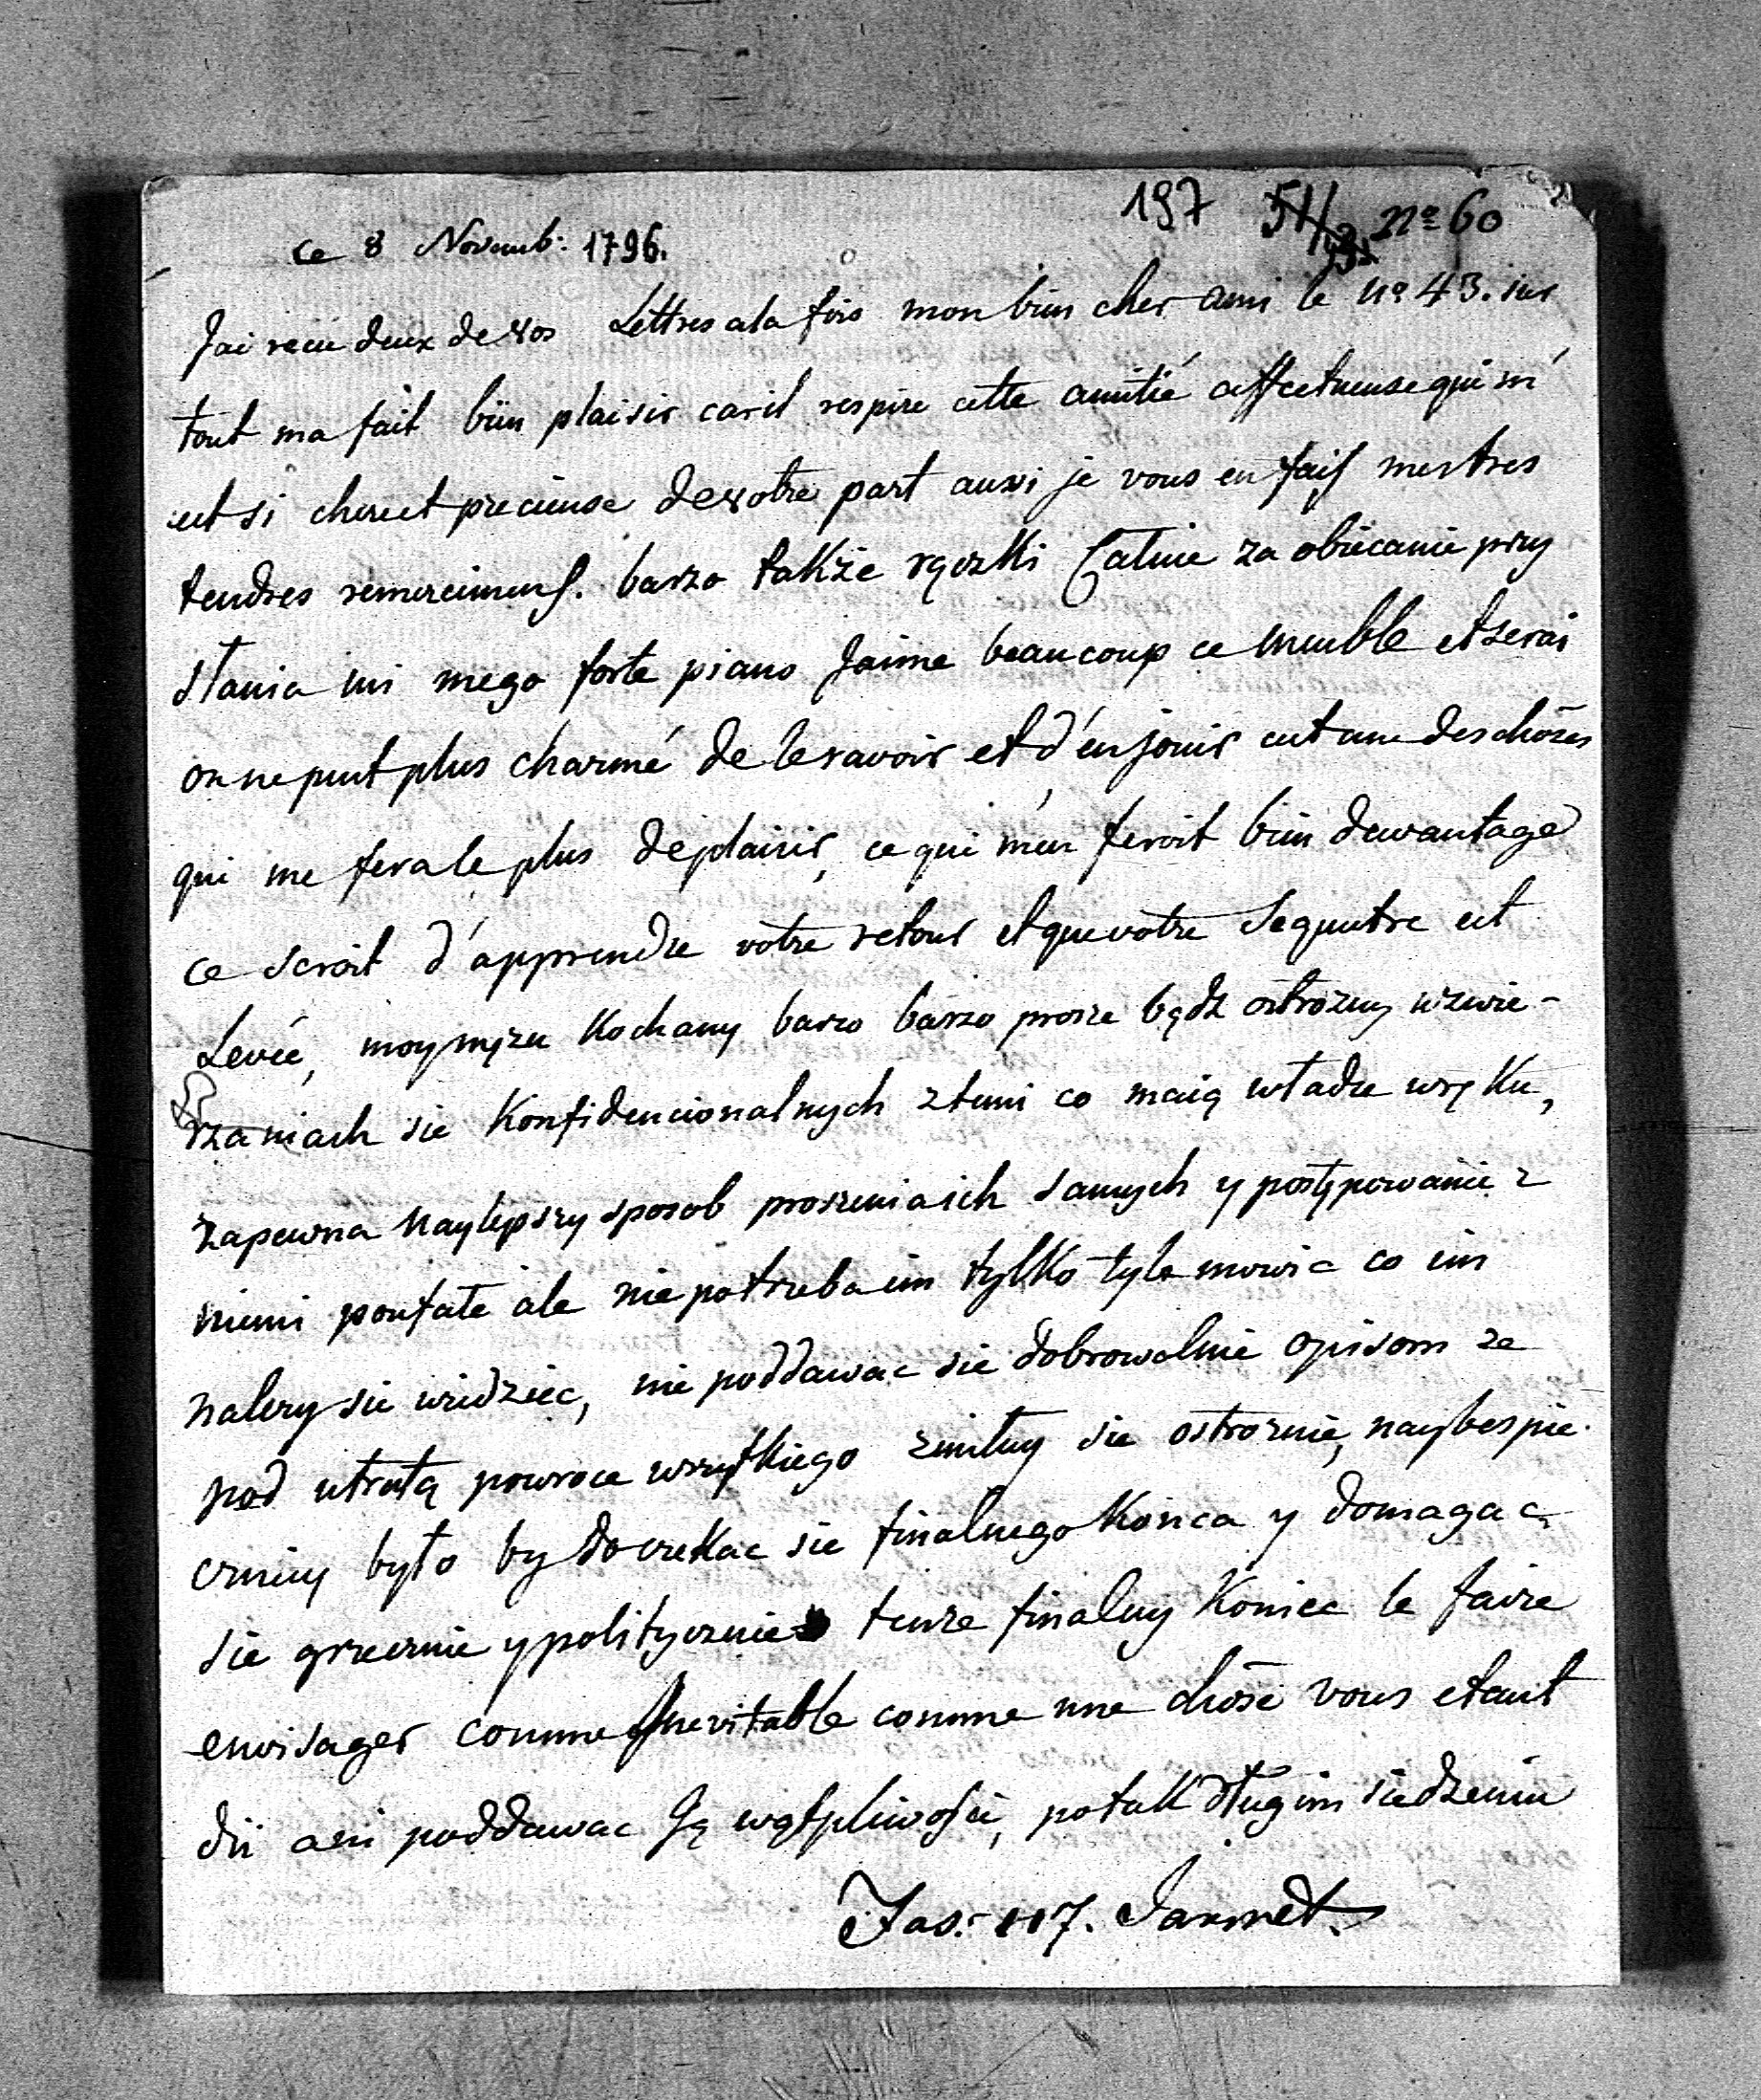 197 51/ nº 60
ce 8 Novemb: 1796.
Jai recu deux de vos Lettres ala fois mon bien cher ami le nº 43. sur
tout ma fait bien plaisir car il respire cette amitié affectueuse qui m'
est si chere et precieuse de votre part aussi je vous en fais mes tres
tendres remercimens. barzo także rączki Całuie za obiecanie przy
słania mi mego forte piano Jaime beaucoup ce meuble et serai
on ne peut plus charmé de le ravoir et d'en jouir cest une des choses
qui me fera le plus de plaisir, ce qui m'en feroit bien dewantage
ce seroit d'apprendre votre retour et que votre Sequestre est
Levée, moy mężu Kochany barzo barzo prosze bądz ostrożny wzwie-
rzaniach sie Konfidencionalnych ztemi co maią władze wręku,
zapewna naylepszy sposob proszenia ich samych y postępowanie z
niemi poufałe ale nie potrzeba im tylko tyle mowic co im
nalezy sie widziec, nie poddawac sie dobrowolnie opisom ze
pod utratą powroce wszystkiego zmiłuy sie ostroznie, naybespie-
czniey było by doczekac sie finalnego Konca y domagac
sie grzecznie y politycznie tenze finalny Koniec le faire
envisager comme Inevitable comme une chose vous etant
dii ani poddawac Ją wątpliwości, po tak długim siedzeniu